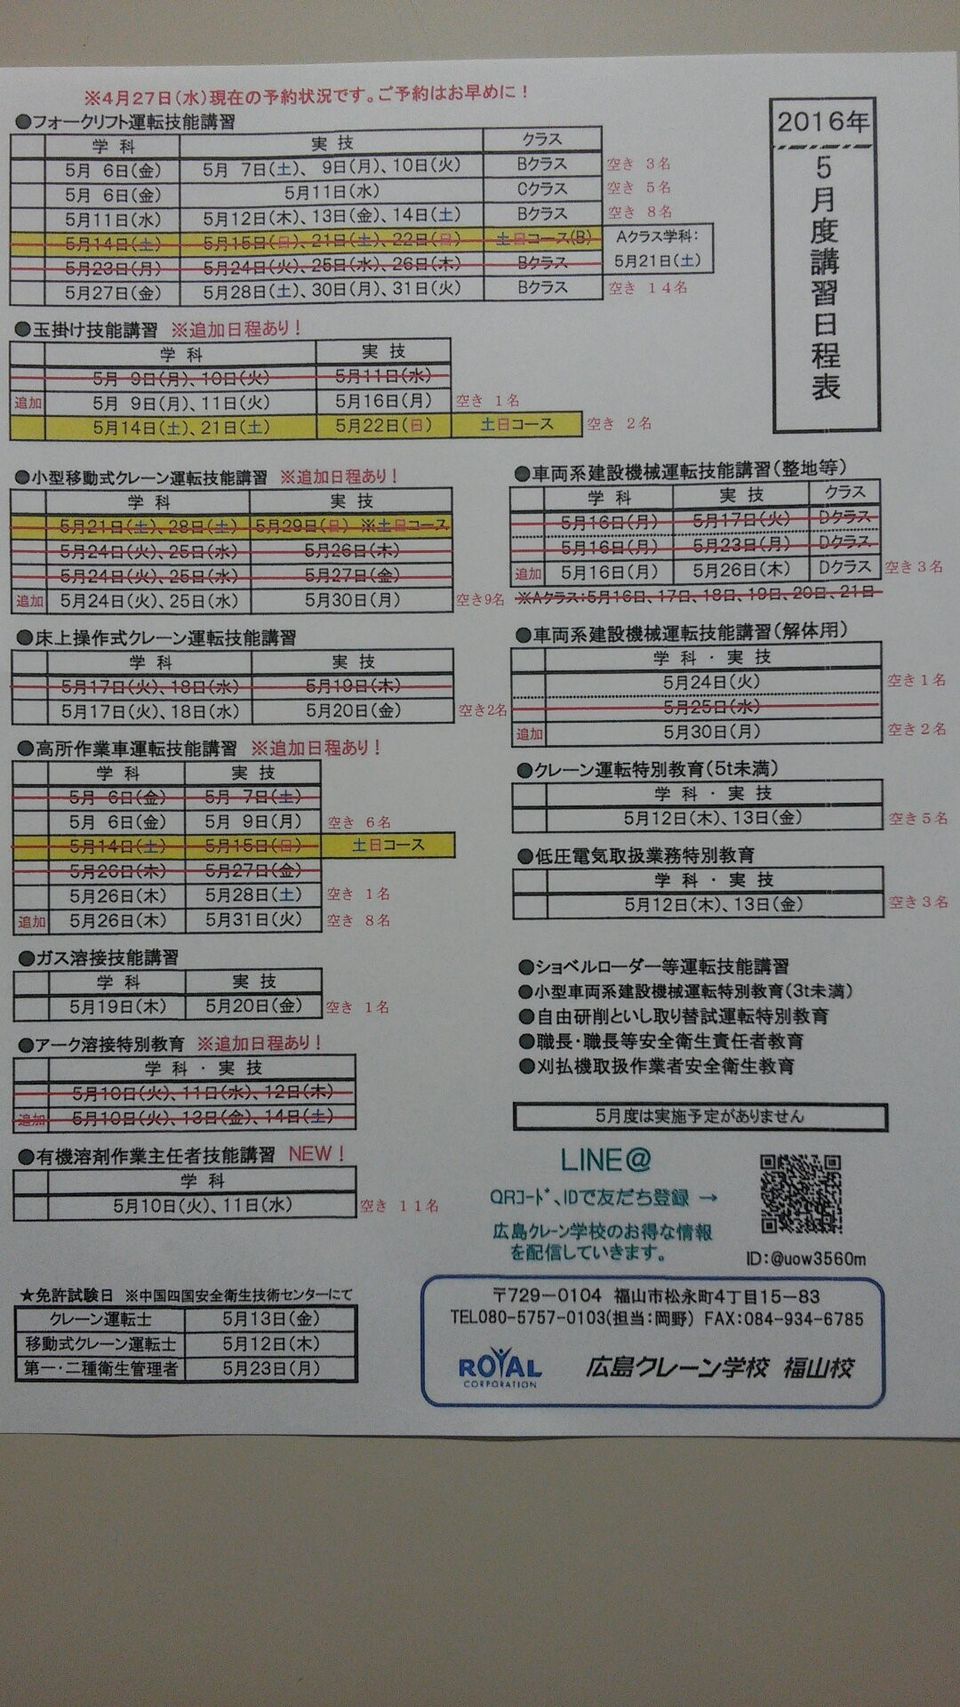 ※4月27日(水)現在の予約状況です。ご予約はお早めに!
2016年
5月度講習日程表
●フォークリフト運転技能講習
学科 実技 クラス
5月 6日(金) 5月 7日(土)、 9日(月)、10日(火) Bクラス 空き 3名
5月 6日(金) 5月11日(水) Cクラス 空き 5名
5月11日(水) 5月12日(木)、13日(金)、14日(土) Bクラス 空き 8名
5月14日(土) 5月15日(日)、21日(土)、22日(日) 土日コース(B) Aクラス学科:
5月23日(月) 5月24日(火)、25日(水)、26日(木) Bクラス 5月21日(土)
5月27日(金) 5月28日(土)、30日(月)、31日(火) Bクラス 空き 14名
●玉掛け技能講習 ※追加日程あり!
学科 実技
5月 9日(月)、10日(火) 5月11日(水)
追加 5月 9日(月)、11日(火) 5月16日(月) 空き 1名
5月14日(土)、21日(土) 5月22日(日) 土日コース 空き 2名
●小型移動式クレーン運転技能講習 ※追加日程あり!
学科 実技
5月21日(土)、28日(土) 5月29日(日) ※土日コース
5月24日(火)、25日(水) 5月26日(木)
5月24日(火)、25日(水) 5月27日(金)
追加 5月24日(火)、25日(水) 5月30日(月) 空き9名
●床上操作式クレーン運転技能講習
学科 実技
5月17日(火)、18日(水) 5月19日(木)
5月17日(火)、18日(水) 5月20日(金) 空き2名
●高所作業車運転技能講習 ※追加日程あり!
学科 実技
5月 6日(金) 5月 7日(土)
5月 6日(金) 5月 9日(月) 空き 6名
5月14日(土) 5月15日(日) 土日コース
5月26日(木) 5月27日(金)
5月26日(木) 5月28日(土) 空き 1名
追加 5月26日(木) 5月31日(火) 空き 8名
●ガス溶接技能講習
学科 実技
5月19日(木) 5月20日(金) 空き 1名
●アーク溶接特別教育 ※追加日程あり!
学科・実技
5月10日(火)、11日(水)、12日(木)
追加 5月10日(火)、13日(金)、14日(土)
●有機溶剤作業主任者技能講習 NEW!
学科
5月10日(火)、11日(水) 空き 11名
★免許試験日 ※中国四国安全衛生技術センターにて
クレーン運転士 5月13日(金)
移動式クレーン運転士 5月12日(木)
第一・二種衛生管理者 5月23日(月)
●車両系建設機械運転技能講習(整地等)
学科 実技 クラス
5月16日(月) 5月17日(火) Dクラス
5月16日(月) 5月23日(月) Dクラス
追加 5月16日(月) 5月26日(木) Dクラス 空き3名
※Aクラス:5月16日、17日、18日、19日、20日、21日
●車両系建設機械運転技能講習(解体用)
学科・実技
5月24日(火) 空き1名
5月25日(水)
追加 5月30日(月) 空き2名
●クレーン運転特別教育(5t未満)
学科・実技
5月12日(木)、13日(金) 空き5名
●低圧電気取扱業務特別教育
学科・実技
5月12日(木)、13日(金) 空き3名
●ショベルローダー等運転技能講習
●小型車両系建設機械運転特別教育(3t未満)
●自由研削といし取り替試運転特別教育
●職長・職長等安全衛生責任者教育
●刈払機取扱作業者安全衛生教育
5月度は実施予定がありません
LINE@
QRコード、IDで友だち登録 →
広島クレーン学校のお得な情報
を配信していきます。
ID:@uow3560m
〒729-0104 福山市松永町4丁目15-83
TEL080-5757-0103(担当:岡野) FAX:084-934-6785
ROYAL CORPORATION 広島クレーン学校 福山校